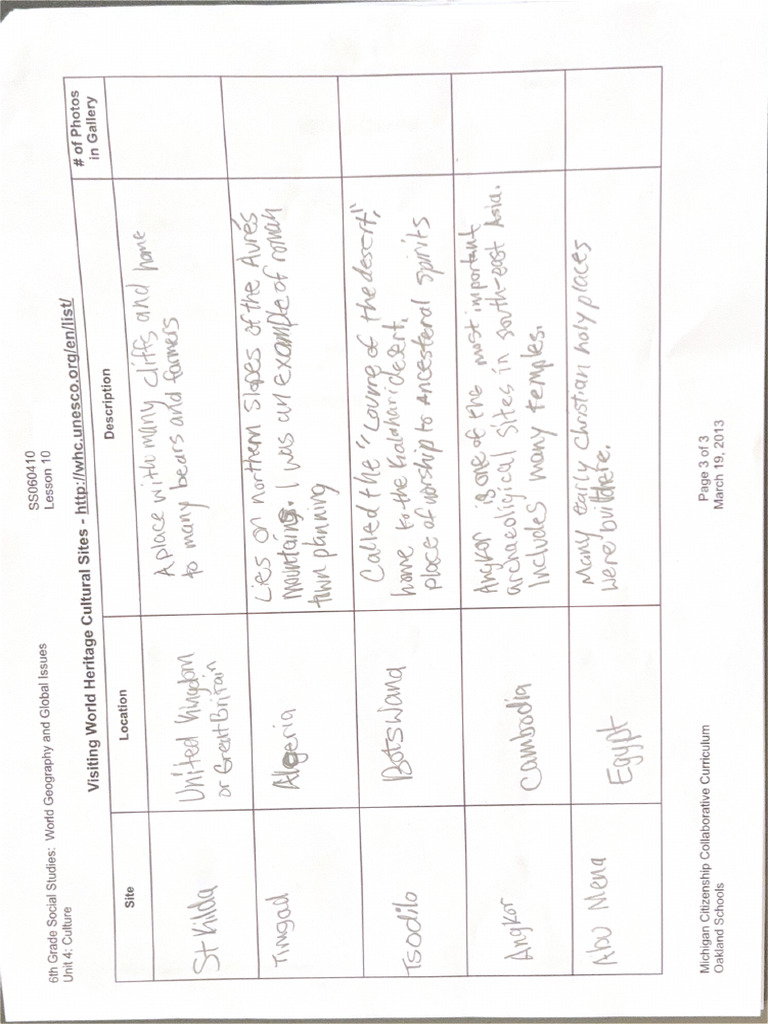 6th Grade Social Studies: World Geography and Global Issues
Unit 4: Culture
SS060410
Lesson 10
Visiting World Heritage Cultural Sites - http://whc.unesco.org/en/list/
Site
Location
Description
# of Photos
in Gallery
St Kilda
United Kingdom
or Great Britain
A place with many cliffs and home
to many bears and farmers
Timgad
Algeria
Lies on northern slopes of the Aurès
mountains. I was an example of roman
town planning
Tsodilo
Botswana
Called the "Louvre of the desert",
home to the Kalahari desert.
place of worship to Ancesteral spirits
Angkor
Cambodia
Angkor is one of the most important
archaeoligical sites in south-east Asia.
Includes many temples.
Abu Mena
Egypt
Many early Christian holy places
were built here.
Michigan Citizenship Collaborative Curriculum
Oakland Schools
Page 3 of 3
March 19, 2013